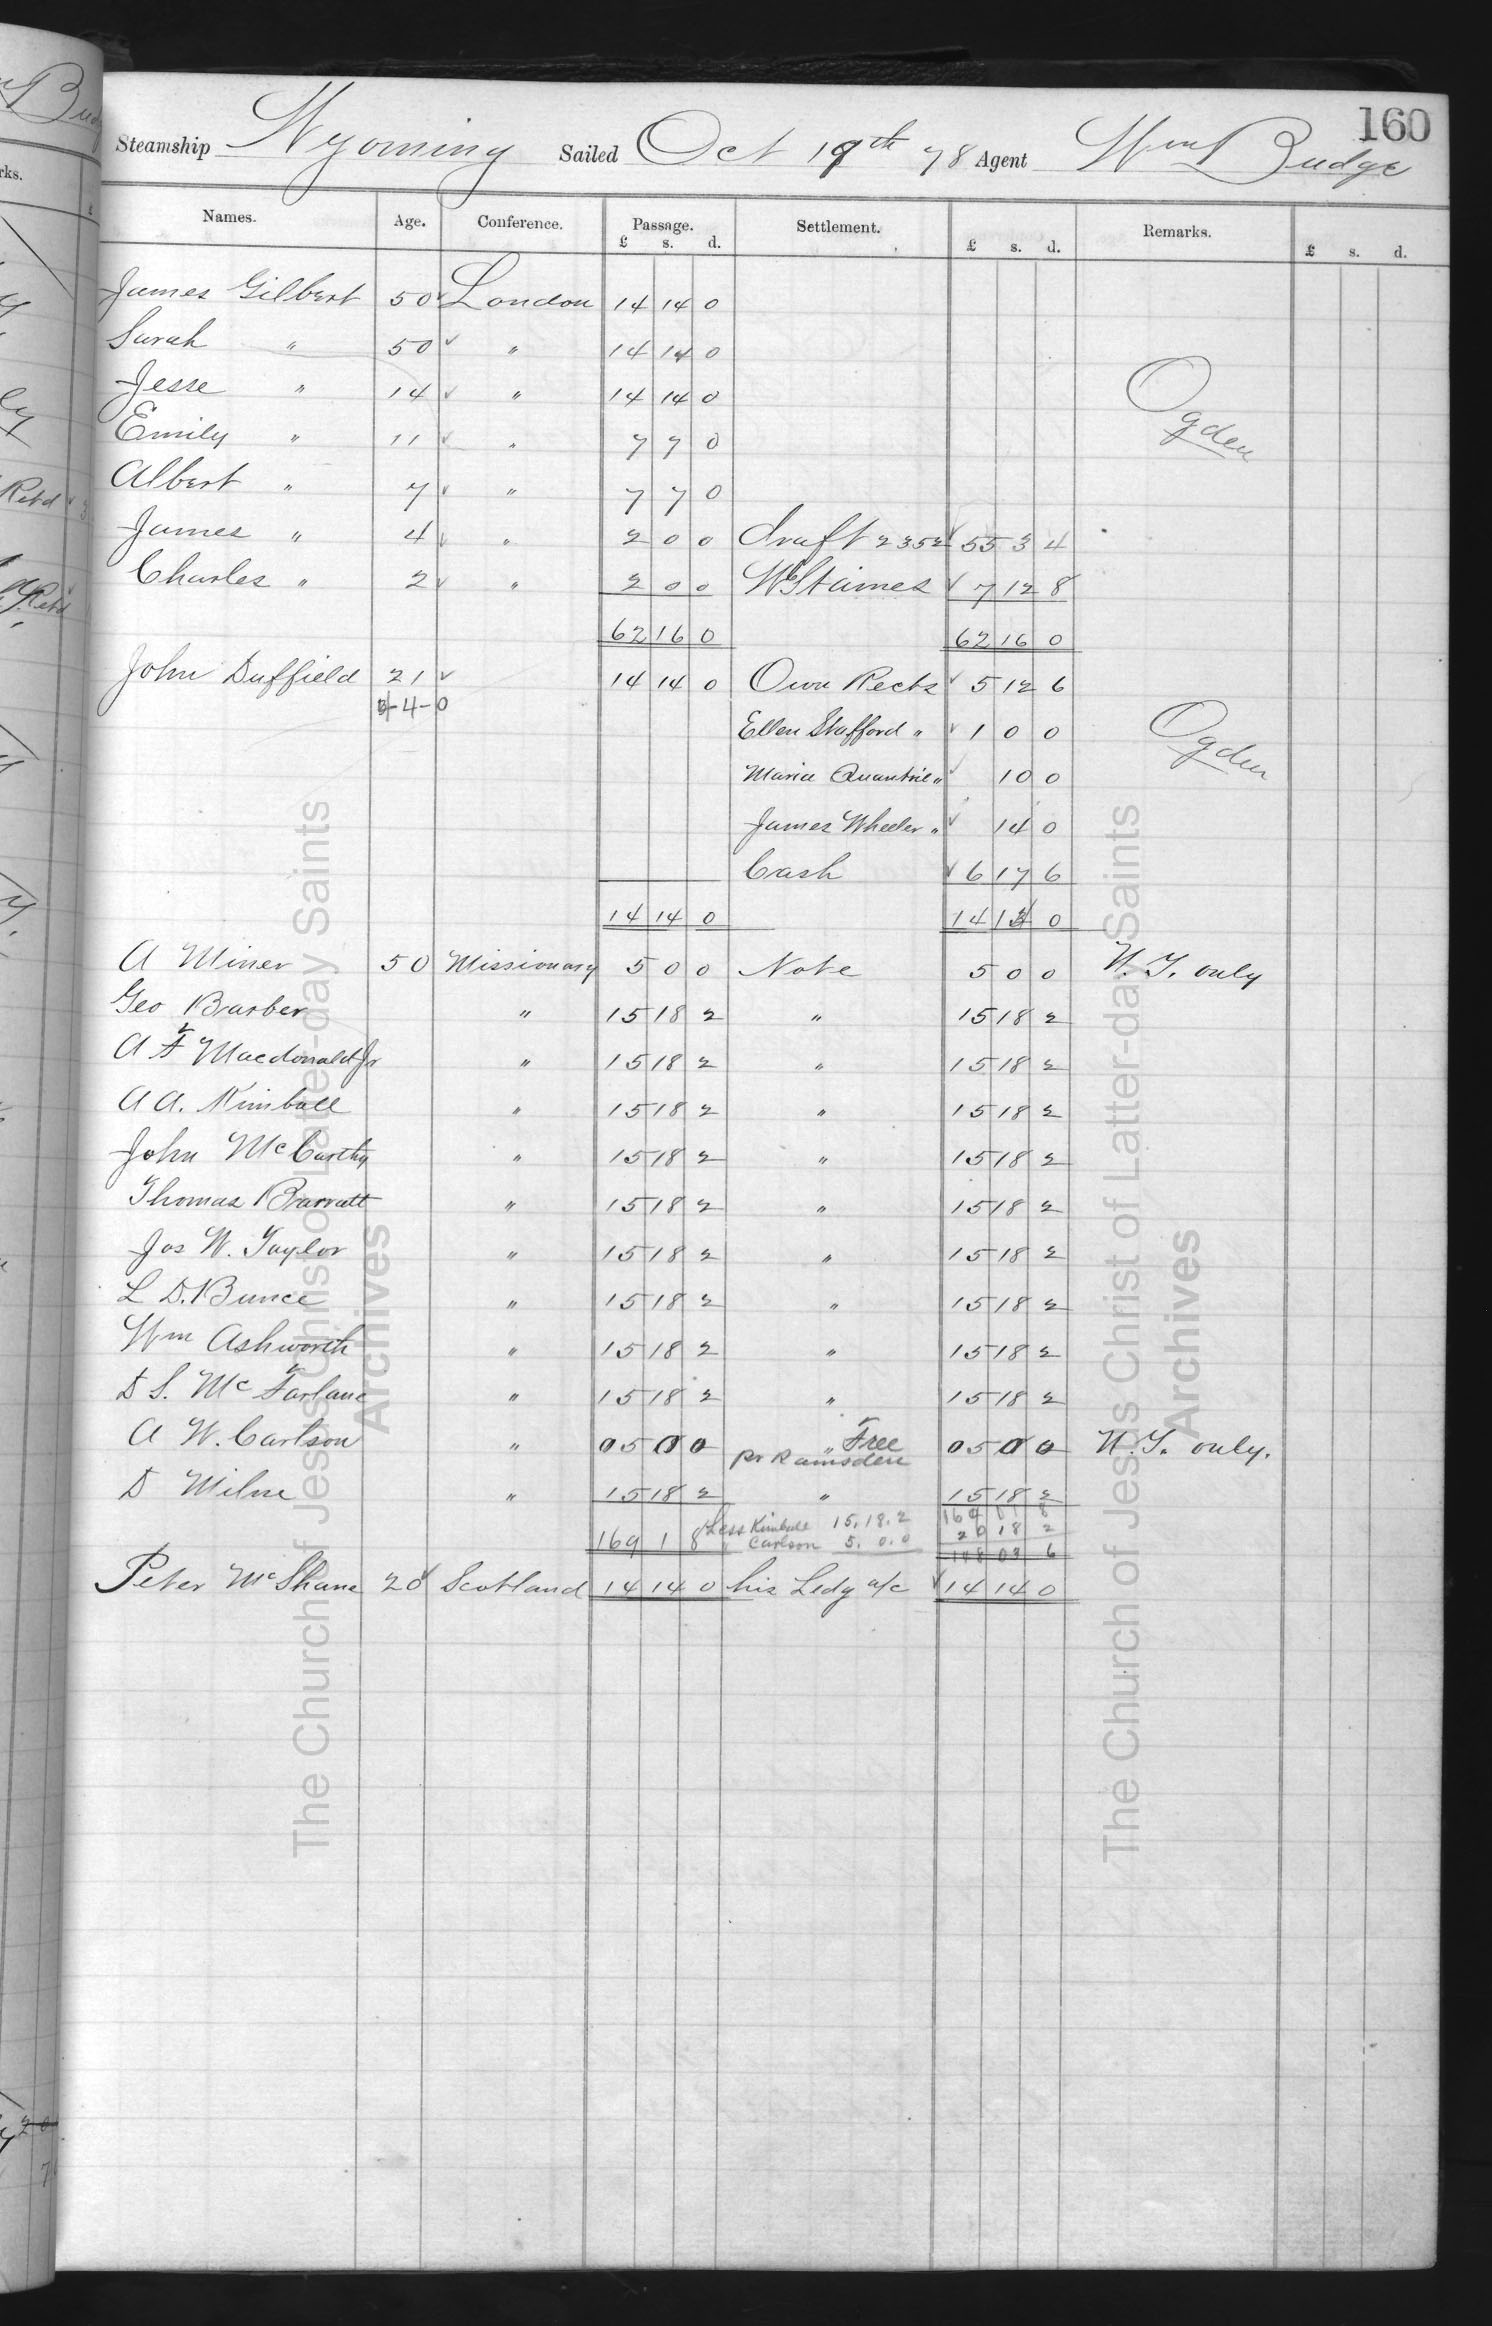 160
Steamship Wyoming Sailed Oct 19th 78 Agent Wm Budge
Names. Age. Conference. Passage. £ s. d. Settlement. £ s. d. Remarks. £ s. d.
James Gilbert 50 ✓ London 14 14 0
Sarah " 50 ✓ " 14 14 0
Jesse " 14 ✓ " 14 14 0
Emily " 11 ✓ " 7 7 0 Ogden
Albert " 7 ✓ " 7 7 0
James " 4 ✓ " 2 0 0 draft 2352 ✓ 55 3 4
Charles " 2 ✓ " 2 0 0 W Staines ✓ 7 12 8
62 16 0 62 16 0
John Duffield 21 ✓ 14 14 0 Own Rects ✓ 5 12 6
-4-0
Ellen Stafford " ✓ 1 0 0 Ogden
Maria Quantrie " ✓ 10 0
James Wheeler " ✓ 14 0
Cash ✓ 6 17 6
14 14 0 14 14 0
A Miner 50 Missionary 5 0 0 Note 5 0 0 N.Y. only
Geo Barber " 15 18 2 " 15 18 2
A F Macdonald Jr " 15 18 2 " 15 18 2
A A. Kimball " 15 18 2 " 15 18 2
John McCarthy " 15 18 2 " 15 18 2
Thomas Barratt " 15 18 2 " 15 18 2
Jos W. Taylor " 15 18 2 " 15 18 2
L D. Bunce " 15 18 2 " 15 18 2
Wm Ashworth " 15 18 2 " 15 18 2
D S. McFarlane " 15 18 2 " 15 18 2
A W. Carlson " 05 0 0 " Free 05 0 0 N.Y. only.
pr Ramsden
D Milne " 15 18 2 " 15 18 2
Less Kimball 15.18.2
169 1 8 " Carlson 5.0.0 20 18 2
Peter McShane 20 ✓ Scotland 14 14 0 his Ledg a/c ✓ 14 14 0
The Church of Jesus Christ of Latter-day Saints
Archives
The Church of Jesus Christ of Latter-day Saints
Archives